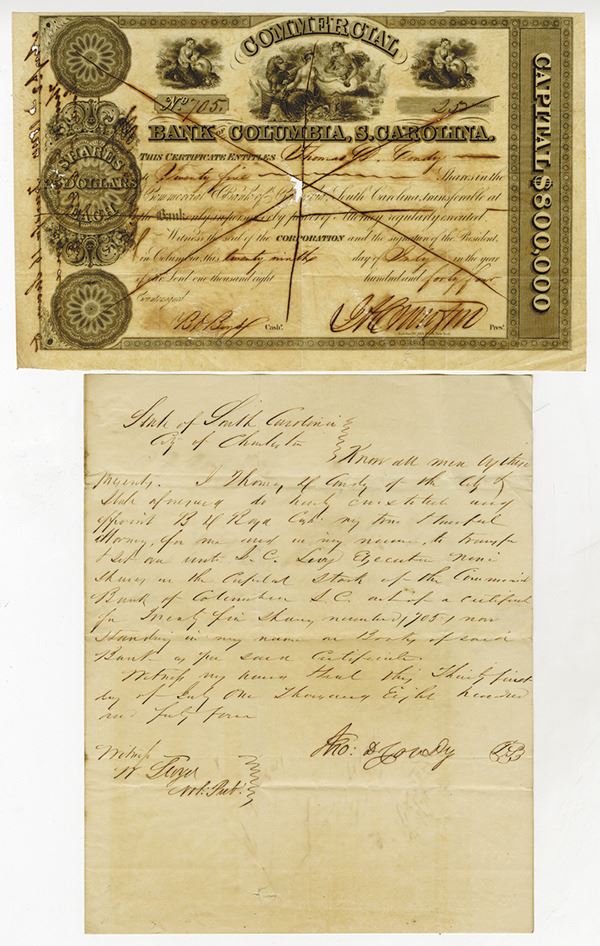 COMMERCIAL
No 705.
25
BANK OF COLUMBIA, S.CAROLINA.
THIS CERTIFICATE ENTITLES Thomas D. Condy
to Twenty five Shares in the
Commercial Bank of Columbia, South Carolina, transferable at
the Bank only in person or by power of Attorney regularly executed.
Witness the seal of the CORPORATION and the signature of the President,
in Columbia, this twenty ninth day of July in the year
of our Lord one thousand eight hundred and forty four
Cashr.
Prest.
SHARES
25 DOLLARS
EACH
CAPITAL $800,000
State of South Carolina
City of Charleston
Know all men by these
presents. I Thomas D Condy of the City &
State aforesaid do hereby constitute and
appoint B H Boyd Esqr. my true & lawful
attorney, for me and in my name, to transfer
& set over unto J. C. Levy Executor Nine
Shares in the Capital Stock of the Commercial
Bank of Columbia S.C. out of a certificate
for Twenty five Shares numbered 705, now
standing in my name on Books of said
Bank as per said Certificate.
Witness my hand & seal this Thirty first
day of July One Thousand Eight hundred
and forty four
Tho: D Condy
Witness
Not: Pub: